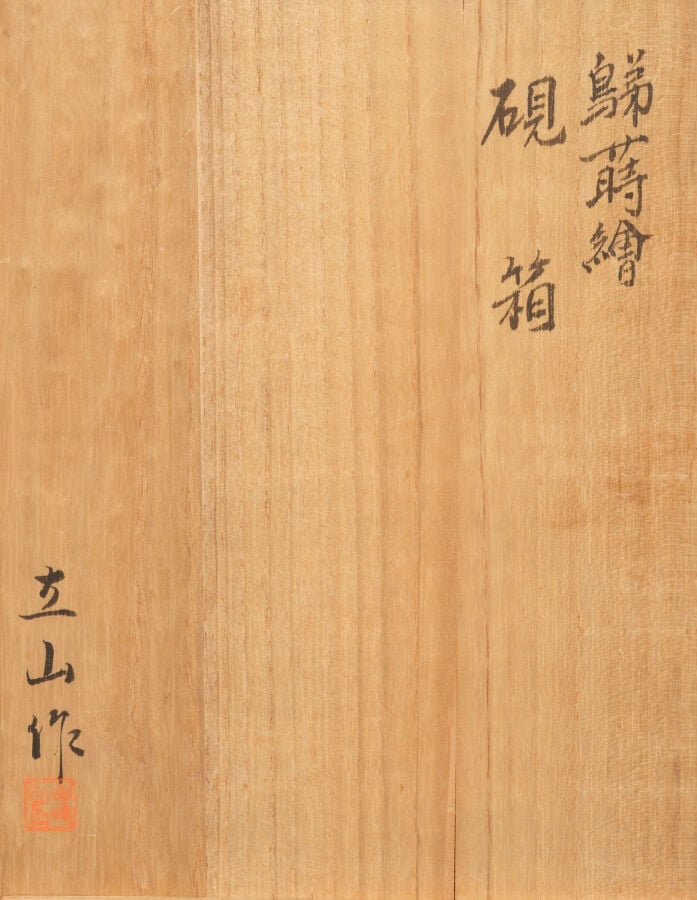 鵜蒔繪
硯箱
立山作